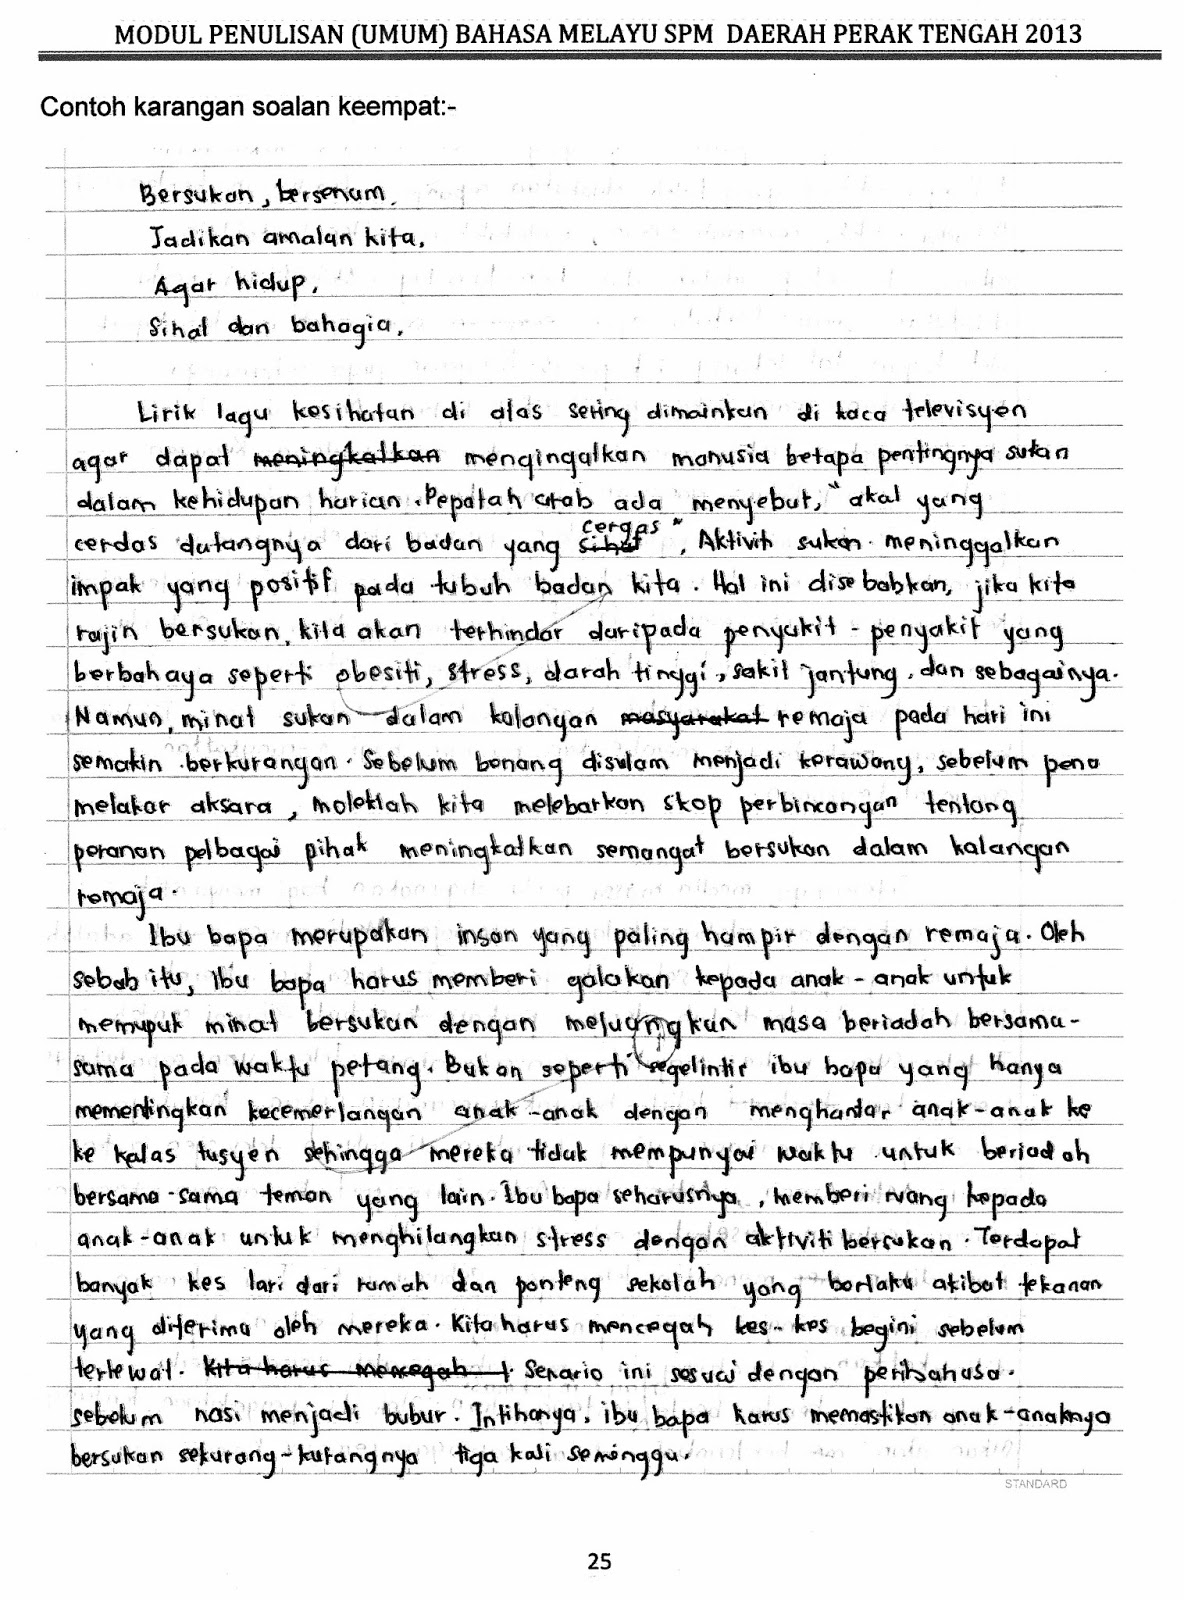 MODUL PENULISAN (UMUM) BAHASA MELAYU SPM DAERAH PERAK TENGAH 2013
Contoh karangan soalan keempat:-
Bersukan, bersenam,
Jadikan amalan kita,
Agar hidup,
Sihat dan bahagia,
Lirik lagu kesihatan di atas sering dimainkan di kaca televisyen
agar dapat meningkatkan mengingatkan manusia betapa pentingnya sukan
dalam kehidupan harian. Pepatah arab ada menyebut, "akal yang
cerdas datangnya dari badan yang sihat cergas", Aktiviti sukan meninggalkan
impak yang positif pada tubuh badan kita. Hal ini disebabkan, jika kita
rajin bersukan, kita akan terhindar daripada penyakit-penyakit yang
berbahaya seperti obesiti, stress, darah tinggi, sakit jantung, dan sebagainya.
Namun, minat sukan dalam kalangan masyarakat remaja pada hari ini
semakin berkurangan. Sebelum benang disulam menjadi kerawang, sebelum pena
melakar aksara, moleklah kita melebarkan skop perbincangan tentang
peranan pelbagai pihak meningkatkan semangat bersukan dalam kalangan
remaja.
Ibu bapa merupakan insan yang paling hampir dengan remaja. Oleh
sebab itu, ibu bapa harus memberi galakan kepada anak-anak untuk
memupuk minat bersukan dengan meluangkan masa beriadah bersama-
sama pada waktu petang. Bukan seperti segelintir ibu bapa yang hanya
mementingkan kecemerlangan anak-anak dengan menghantar anak-anak ke
ke kelas tusyen sehingga mereka tidak mempunyai waktu untuk beriadah
bersama-sama teman yang lain. Ibu bapa seharusnya, memberi ruang kepada
anak-anak untuk menghilangkan stress dengan aktiviti bersukan. Terdapat
banyak kes lari dari rumah dan ponteng sekolah yang berlaku akibat tekanan
yang diterima oleh mereka. Kita harus mencegah kes-kes begini sebelum
terlewat. Kita harus mencegah Senario ini sesuai dengan peribahasa.
sebelum nasi menjadi bubur. Intihanya, ibu bapa harus memastikan anak-anaknya
bersukan sekurang-kurangnya tiga kali seminggu.
STANDARD
25